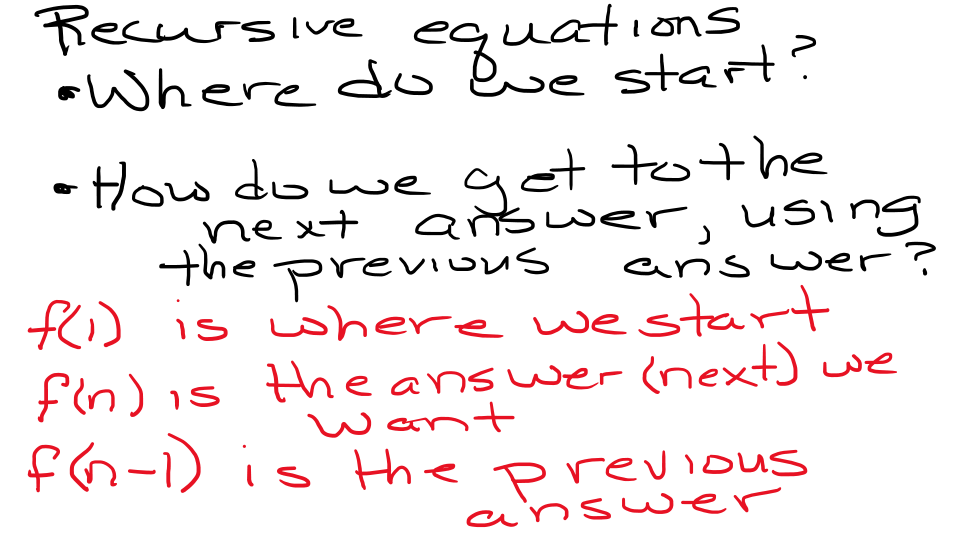 Recursive equations
• Where do we start?
• How do we get to the
next answer, using
the previous answer?
f(1) is where we start
f(n) is the answer (next) we
want
f(n-1) is the previous
answer